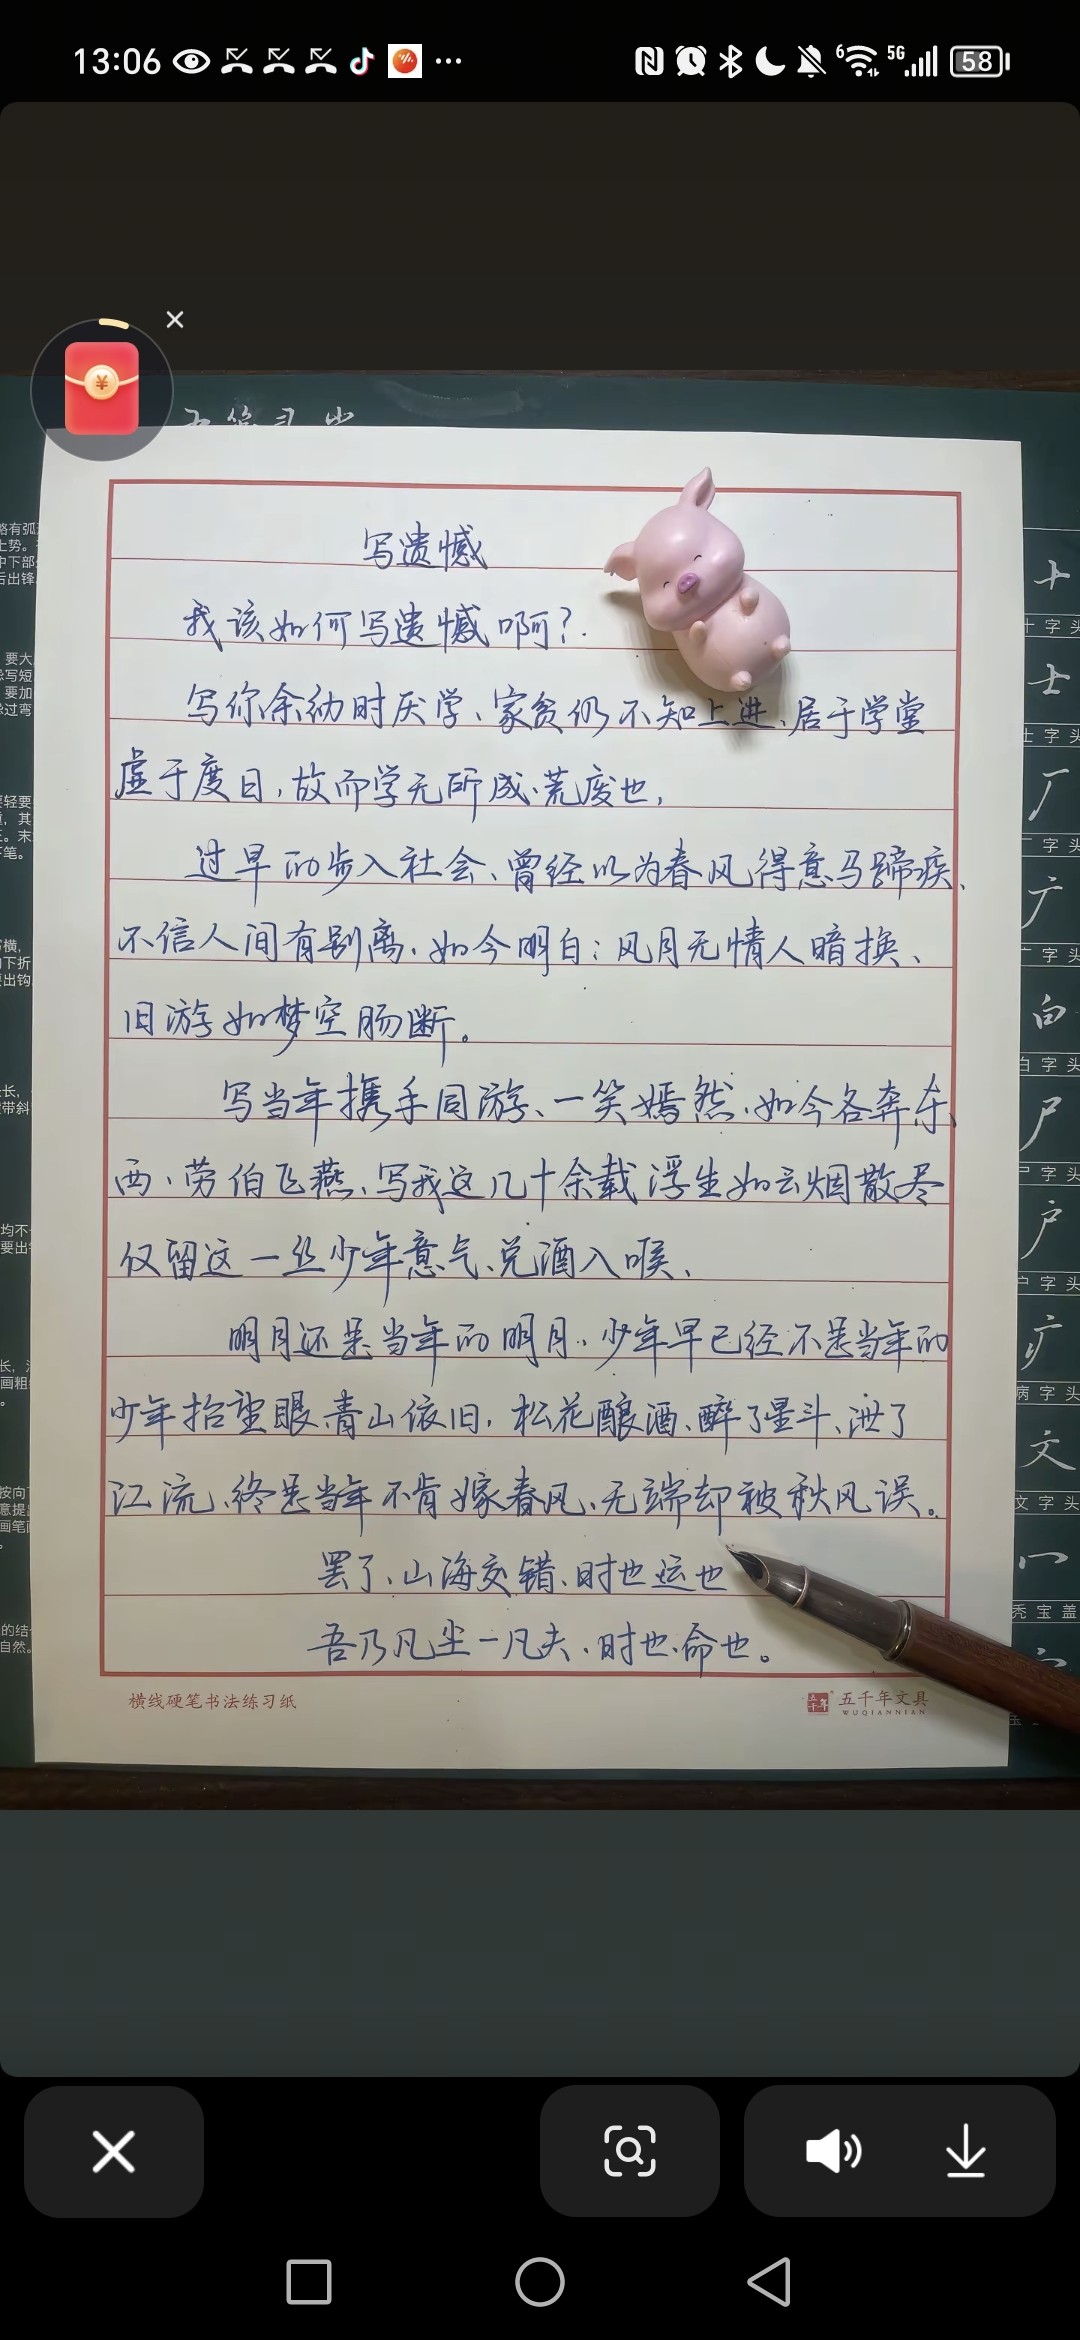 13:06
6
5G
58
¥
写遗憾
我该如何写遗憾啊?
写你余幼时厌学、家贫仍不知上进、居于学堂
虚于度日,故而学无所成、荒废也,
过早的步入社会、曾经以为春风得意马蹄疾、
不信人间有别离、如今明白:风月无情人暗换、
旧游如梦空肠断。
写当年携手同游、一笑嫣然、如今各奔东、
西、劳伯飞燕、写我这几十余载浮生如云烟散尽
仅留这一丝少年意气、兑酒入喉、
明月还是当年的明月、少年早已经不是当年的
少年抬望眼青山依旧,松花酿酒、醉了星斗、泄了
江流、终是当年不肯嫁春风、无端却被秋风误。
罢了、山海交错、时也运也
吾乃凡尘一凡夫、时也、命也。
横线硬笔书法练习纸
五千年文具
WUQIANNIAN
十字头
士
士字头
厂
厂字头
广
广字头
白
白字头
尸
尸字头
户
户字头
疒
病字头
文
文字头
冖
秃宝盖